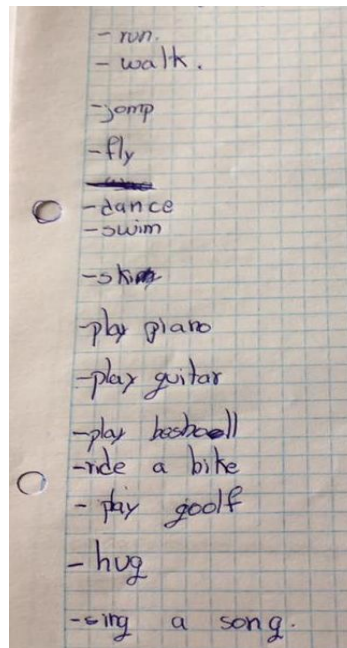 - run.
- walk.
- jomp
- fly
- dance
- swim
- ski
- play piano
- play guitar
- play besboll
- ride a bike
- play goolf
- hug
- sing a song.